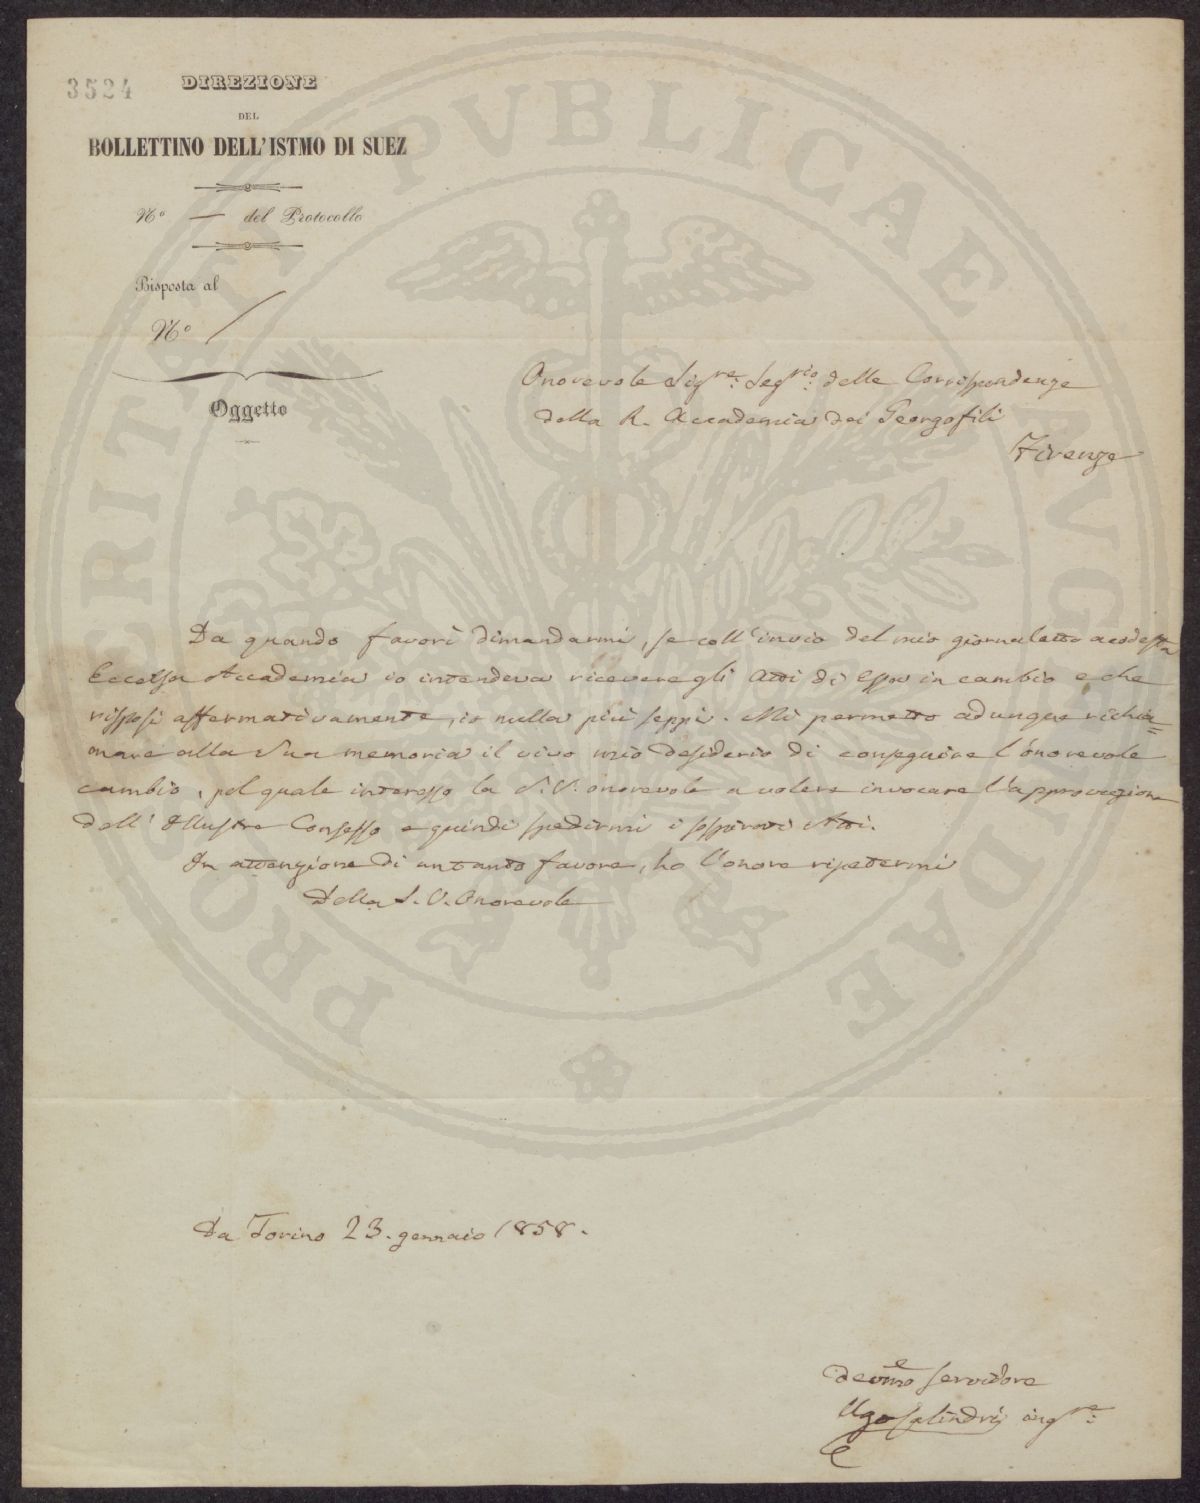 3524
DIREZIONE
DEL
BOLLETTINO DELL'ISTMO DI SUEZ
N.o — del Protocollo
Risposta al
N.o /
Oggetto
Onorevole Sig.re Seg.rio delle Corrispondenze
della R. Accademia dei Georgofili
Firenze
Da quando favorì dimandarmi, se coll'invio del mio giornaletto a codesta
Eccelsa Accademia io intendeva ricevere gli Atti di Essa in cambio e che
risposi affermativamente, io nulla più seppi. Mi permetto adunque richia=
mare alla Sua memoria il vivo mio desiderio di conseguire l'onorevole
cambio, pel quale interesso la S. V. onorevole a volere invocare l'approvazione
dell'Illustre Consesso e quindi spedirmi i sospirati Atti.
In attenzione di un tanto favore, ho l'onore ripetermi
Della S. V. Onorevole
Da Torino 23. gennaio 1858.
Devmo servidore
Ugo Calindri ing.re
PROSPERITATI PVBLICAE AVGENDAE